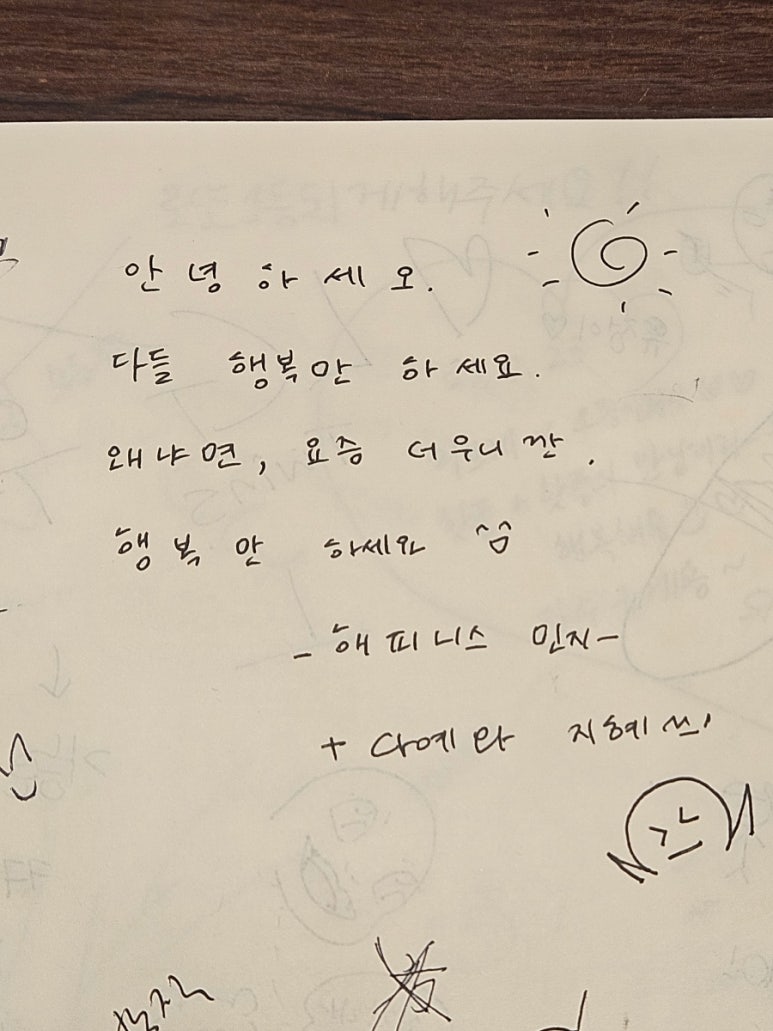 안녕하세오.
다들 행복안 하세요.
왜냐면, 요즘 더우니깐.
행복 안 하세와
- 해피니스 민지 -
+ 다예와 지혜쓰'